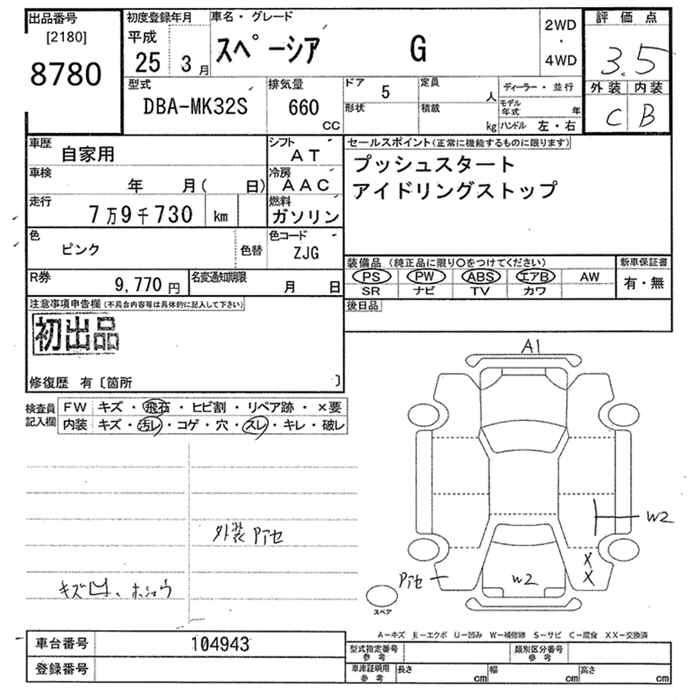 出品番号
[2180]
8780
初度登録年月
平成
25 3月
車名・グレード
スペーシア G
2WD
・
4WD
評価点
3.5
外装 内装
C B
型式
DBA-MK32S
排気量
660
CC
ドア
5
定員
人
形状
積載
kg
ディーラー・並行
モデル年式 年
ハンドル 左・右
車歴
自家用
シフト
AT
車検
年 月( 日)
冷房
AAC
走行
7万9千730 km
燃料
ガソリン
色
ピンク
色替
色コード
ZJG
R券
9,770円
名変通知期限
月 日
セールスポイント(正常に機能するものに限ります)
プッシュスタート
アイドリングストップ
装備品(純正品に限り○をつけてください)
PS PW ABS エアB AW
SR ナビ TV カワ
新車保証書
有・無
後日品
注意事項申告欄(不具合内容等は具体的に記入して下さい)
初出品
修復歴 有〔箇所 〕
検査員記入欄
FW キズ・飛石・ヒビ割・リペア跡・×要
内装 キズ・汚レ・コゲ・穴・スレ・キレ・破レ
外装 Pアセ
キズ凹、ホショウ
A1
W2
X
X
W2
Pアセ
スペア
A―キズ E―エクボ U―凹み W―補修跡 S―サビ C―腐食 XX―交換済
車台番号
104943
登録番号
型式指定番号
参考
類別区分番号
参考
車庫証明用
参考
長さ cm 幅 cm 高さ cm